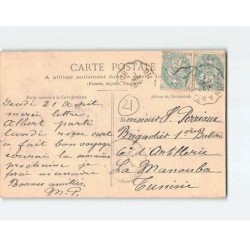 CARTE POSTALE
A utiliser seulement dans
(France, Algérie, Tunisie)
Partie réservée à la Correspondance
Adresse du Destinataire
Jeudi 21 Avril.
merci lettre
Albert parti
lundi reçu carte
a fait bon voyage
la semaine
prochaine je
Bonnes amitiés
M.P.
41
Monsieur P. Perriaux
Brigadier 1ère Batterie
d'Artillerie
La Manouba
Tunisie